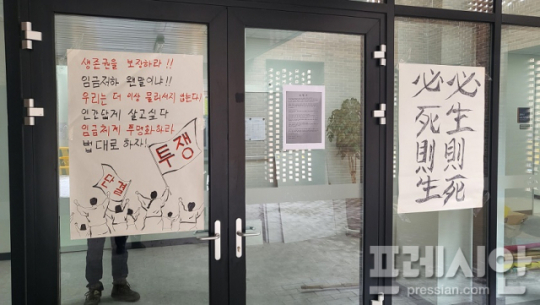 생존권을 보장하라 !!
임금저하 웬말이냐!!
우리는 더 이상 물러서지 않는다!
인간답게 살고싶다
임금체계 투명화하라
법대로 하자!
투쟁
단결
必生則死
必死則生
프레시안
pressian.com